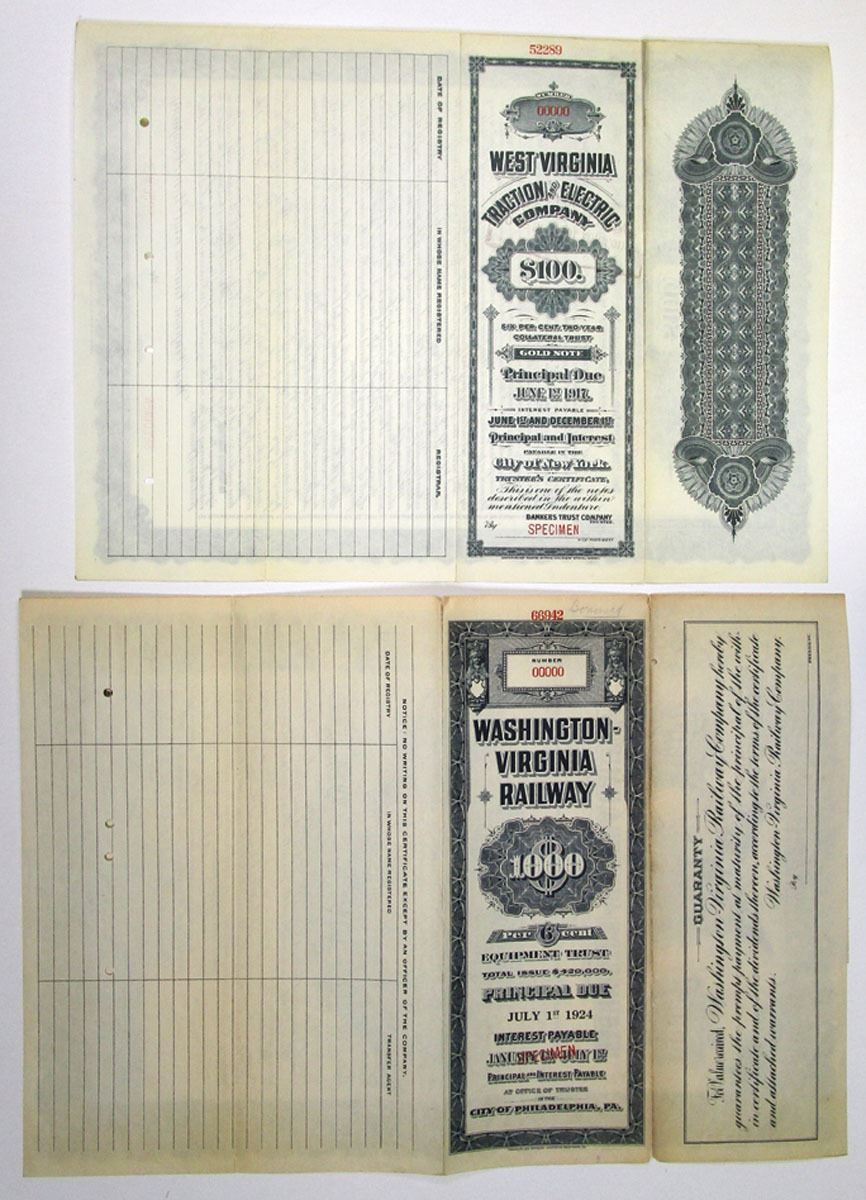 52289
NUMBER
00000
WEST VIRGINIA
TRACTION AND ELECTRIC
COMPANY
$100.
SIX PER CENT. TWO-YEAR
COLLATERAL TRUST
GOLD NOTE
Principal Due
JUNE 1ST 1917.
INTEREST PAYABLE
JUNE 1ST AND DECEMBER 1ST
Principal and Interest
PAYABLE IN THE
City of New York.
TRUSTEE'S CERTIFICATE,
This is one of the notes
described in the within
mentioned Indenture
BANKERS TRUST COMPANY
TRUSTEE
By SPECIMEN
VICE PRESIDENT
DATE OF REGISTRY
IN WHOSE NAME REGISTERED
REGISTRAR.
66942
NUMBER
00000
WASHINGTON-
VIRGINIA
RAILWAY
$1000
PER 6 CENT
EQUIPMENT TRUST
TOTAL ISSUE $420,000,
PRINCIPAL DUE
JULY 1ST 1924
INTEREST PAYABLE
JANUARY 1ST JULY 1ST
SPECIMEN
PRINCIPAL AND INTEREST PAYABLE
AT OFFICE OF TRUSTEE
IN THE
CITY OF PHILADELPHIA, PA.
NOTICE: NO WRITING ON THIS CERTIFICATE EXCEPT BY AN OFFICER OF THE COMPANY.
DATE OF REGISTRY
IN WHOSE NAME REGISTERED
TRANSFER AGENT
GUARANTY
For Value received, Washington Virginia Railway Company hereby
guarantees the prompt payment at maturity of the principal of the with-
in certificate and of the dividends thereon, according to the terms of the certificate
and attached warrants. Washington Virginia Railway Company.
By
PRESIDENT.